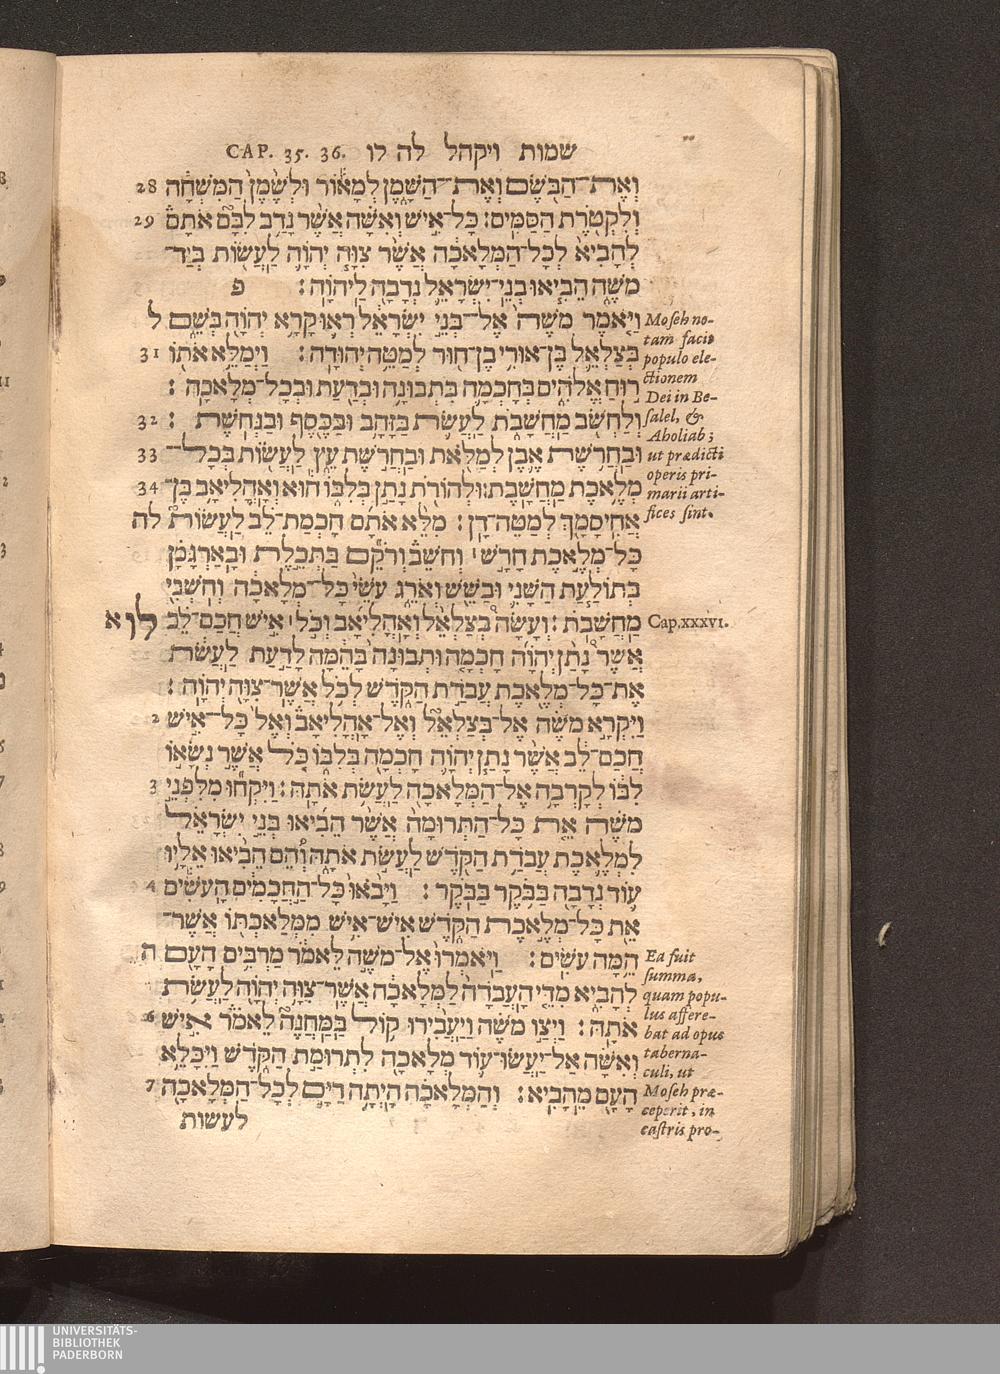 CAP. 35. 36. שמות ויקהל לה לו
וְאֶת־הַבֹּשֶׂם וְאֶת־הַשָּׁמֶן לְמָאוֹר וּלְשֶׁמֶן הַמִּשְׁחָה 28
וְלִקְטֹרֶת הַסַּמִּים׃ כָּל־אִישׁ וְאִשָּׁה אֲשֶׁר נָדַב לִבָּם אֹתָם 29
לְהָבִיא לְכָל־הַמְּלָאכָה אֲשֶׁר צִוָּה יְהוָֹה לַעֲשׂוֹת בְּיַד־
משֶׁה הֵבִיאוּ בְנֵי־יִשְׂרָאֵל נְדָבָה לַיהוָֹה׃ פ
וַיֹּאמֶר משֶׁה אֶל־בְּנֵי יִשְׂרָאֵל רְאוּ קָרָא יְהוָֹה בְּשֵׁם ל
בְּצַלְאֵל בֶּן־אוּרִי בֶן־חוּר לְמַטֵּה יְהוּדָה׃ וַיְמַלֵּא אֹתוֹ 31
רוּחַ אֱלֹהִים בְּחָכְמָה בִּתְבוּנָה וּבְדַעַת וּבְכָל־מְלָאכָה׃
וְלַחְשֹׁב מַחֲשָׁבֹת לַעֲשֹׂת בַּזָּהָב וּבַכֶּסֶף וּבַנְּחֹשֶׁת׃ 32
וּבַחֲרֹשֶׁת אֶבֶן לְמַלֹּאת וּבַחֲרֹשֶׁת עֵץ לַעֲשׂוֹת בְּכָל־ 33
מְלֶאכֶת מַחֲשָׁבֶת׃ וּלְהוֹרֹת נָתַן בְּלִבּוֹ הוּא וְאָהֳלִיאָב בֶּן־ 34
אֲחִיסָמָךְ לְמַטֵּה־דָן׃ מִלֵּא אֹתָם חָכְמַת־לֵב לַעֲשׂוֹת לה
כָּל־מְלֶאכֶת חָרָשׁ׀ וְחשֵׁב וְרֹקֵם בַּתְּכֵלֶת וּבָאַרְגָּמָן
בְּתוֹלַעַת הַשָּׁנִי וּבַשֵּׁשׁ וְאֹרֵג עֹשֵׂי כָּל־מְלָאכָה וְחֹשְׁבֵי
מַחֲשָׁבֹת׃ וְעָשָׂה בְצַלְאֵל וְאָהֳלִיאָב וְכֹל׀ אִישׁ חֲכַם־לֵב לו א
אֲשֶׁר נָתַן יְהוָֹה חָכְמָה וּתְבוּנָה בָּהֵמָּה לָדַעַת לַעֲשֹׂת
אֶת־כָּל־מְלֶאכֶת עֲבֹדַת הַקֹּדֶשׁ לְכֹל אֲשֶׁר־צִוָּה יְהוָֹה׃
וַיִּקְרָא משֶׁה אֶל־בְּצַלְאֵל וְאֶל־אָהֳלִיאָב וְאֶל כָּל־אִישׁ 2
חֲכַם־לֵב אֲשֶׁר נָתַן יְהוָֹה חָכְמָה בְּלִבּוֹ כֹּל אֲשֶׁר נְשָׂאוֹ
לִבּוֹ לְקָרְבָה אֶל־הַמְּלָאכָה לַעֲשֹׂת אֹתָהּ׃ וַיִּקְחוּ מִלִּפְנֵי 3
משֶׁה אֵת כָּל־הַתְּרוּמָה אֲשֶׁר הֵבִיאוּ בְּנֵי יִשְׂרָאֵל
לִמְלֶאכֶת עֲבֹדַת הַקֹּדֶשׁ לַעֲשֹׂת אֹתָהּ וְהֵם הֵבִיאוּ אֵלָיו
עוֹד נְדָבָה בַּבֹּקֶר בַּבֹּקֶר׃ וַיָּבֹאוּ כָּל־הַחֲכָמִים הָעֹשִׂים 4
אֵת כָּל־מְלֶאכֶת הַקֹּדֶשׁ אִישׁ־אִישׁ מִמְּלַאכְתּוֹ אֲשֶׁר־
הֵמָּה עֹשִׂים׃ וַיֹּאמְרוּ אֶל־משֶׁה לֵּאמֹר מַרְבִּים הָעָם ה
לְהָבִיא מִדֵּי הָעֲבֹדָה לַמְּלָאכָה אֲשֶׁר־צִוָּה יְהוָֹה לַעֲשֹׂת
אֹתָהּ׃ וַיְצַו משֶׁה וַיַּעֲבִירוּ קוֹל בַּמַּחֲנֶה לֵאמֹר אִישׁ 6
וְאִשָּׁה אַל־יַעֲשׂוּ־עוֹד מְלָאכָה לִתְרוּמַת הַקֹּדֶשׁ וַיִּכָּלֵא
הָעָם מֵהָבִיא׃ וְהַמְּלָאכָה הָיְתָה דַיָּם לְכָל־הַמְּלָאכָה 7
לעשות
Moseh no-
tam facit
populo ele-
ctionem
Dei in Be-
salel, &
Aholiab;
ut prædicti
operis pri-
marii arti-
fices sint.
Cap.xxxvi.
Ea fuit
summa,
quam popu-
lus affere-
bat ad opus
taberna-
culi, ut
Moseh præ-
ceperit, in
castris pro-
UNIVERSITÄTS-
BIBLIOTHEK
PADERBORN